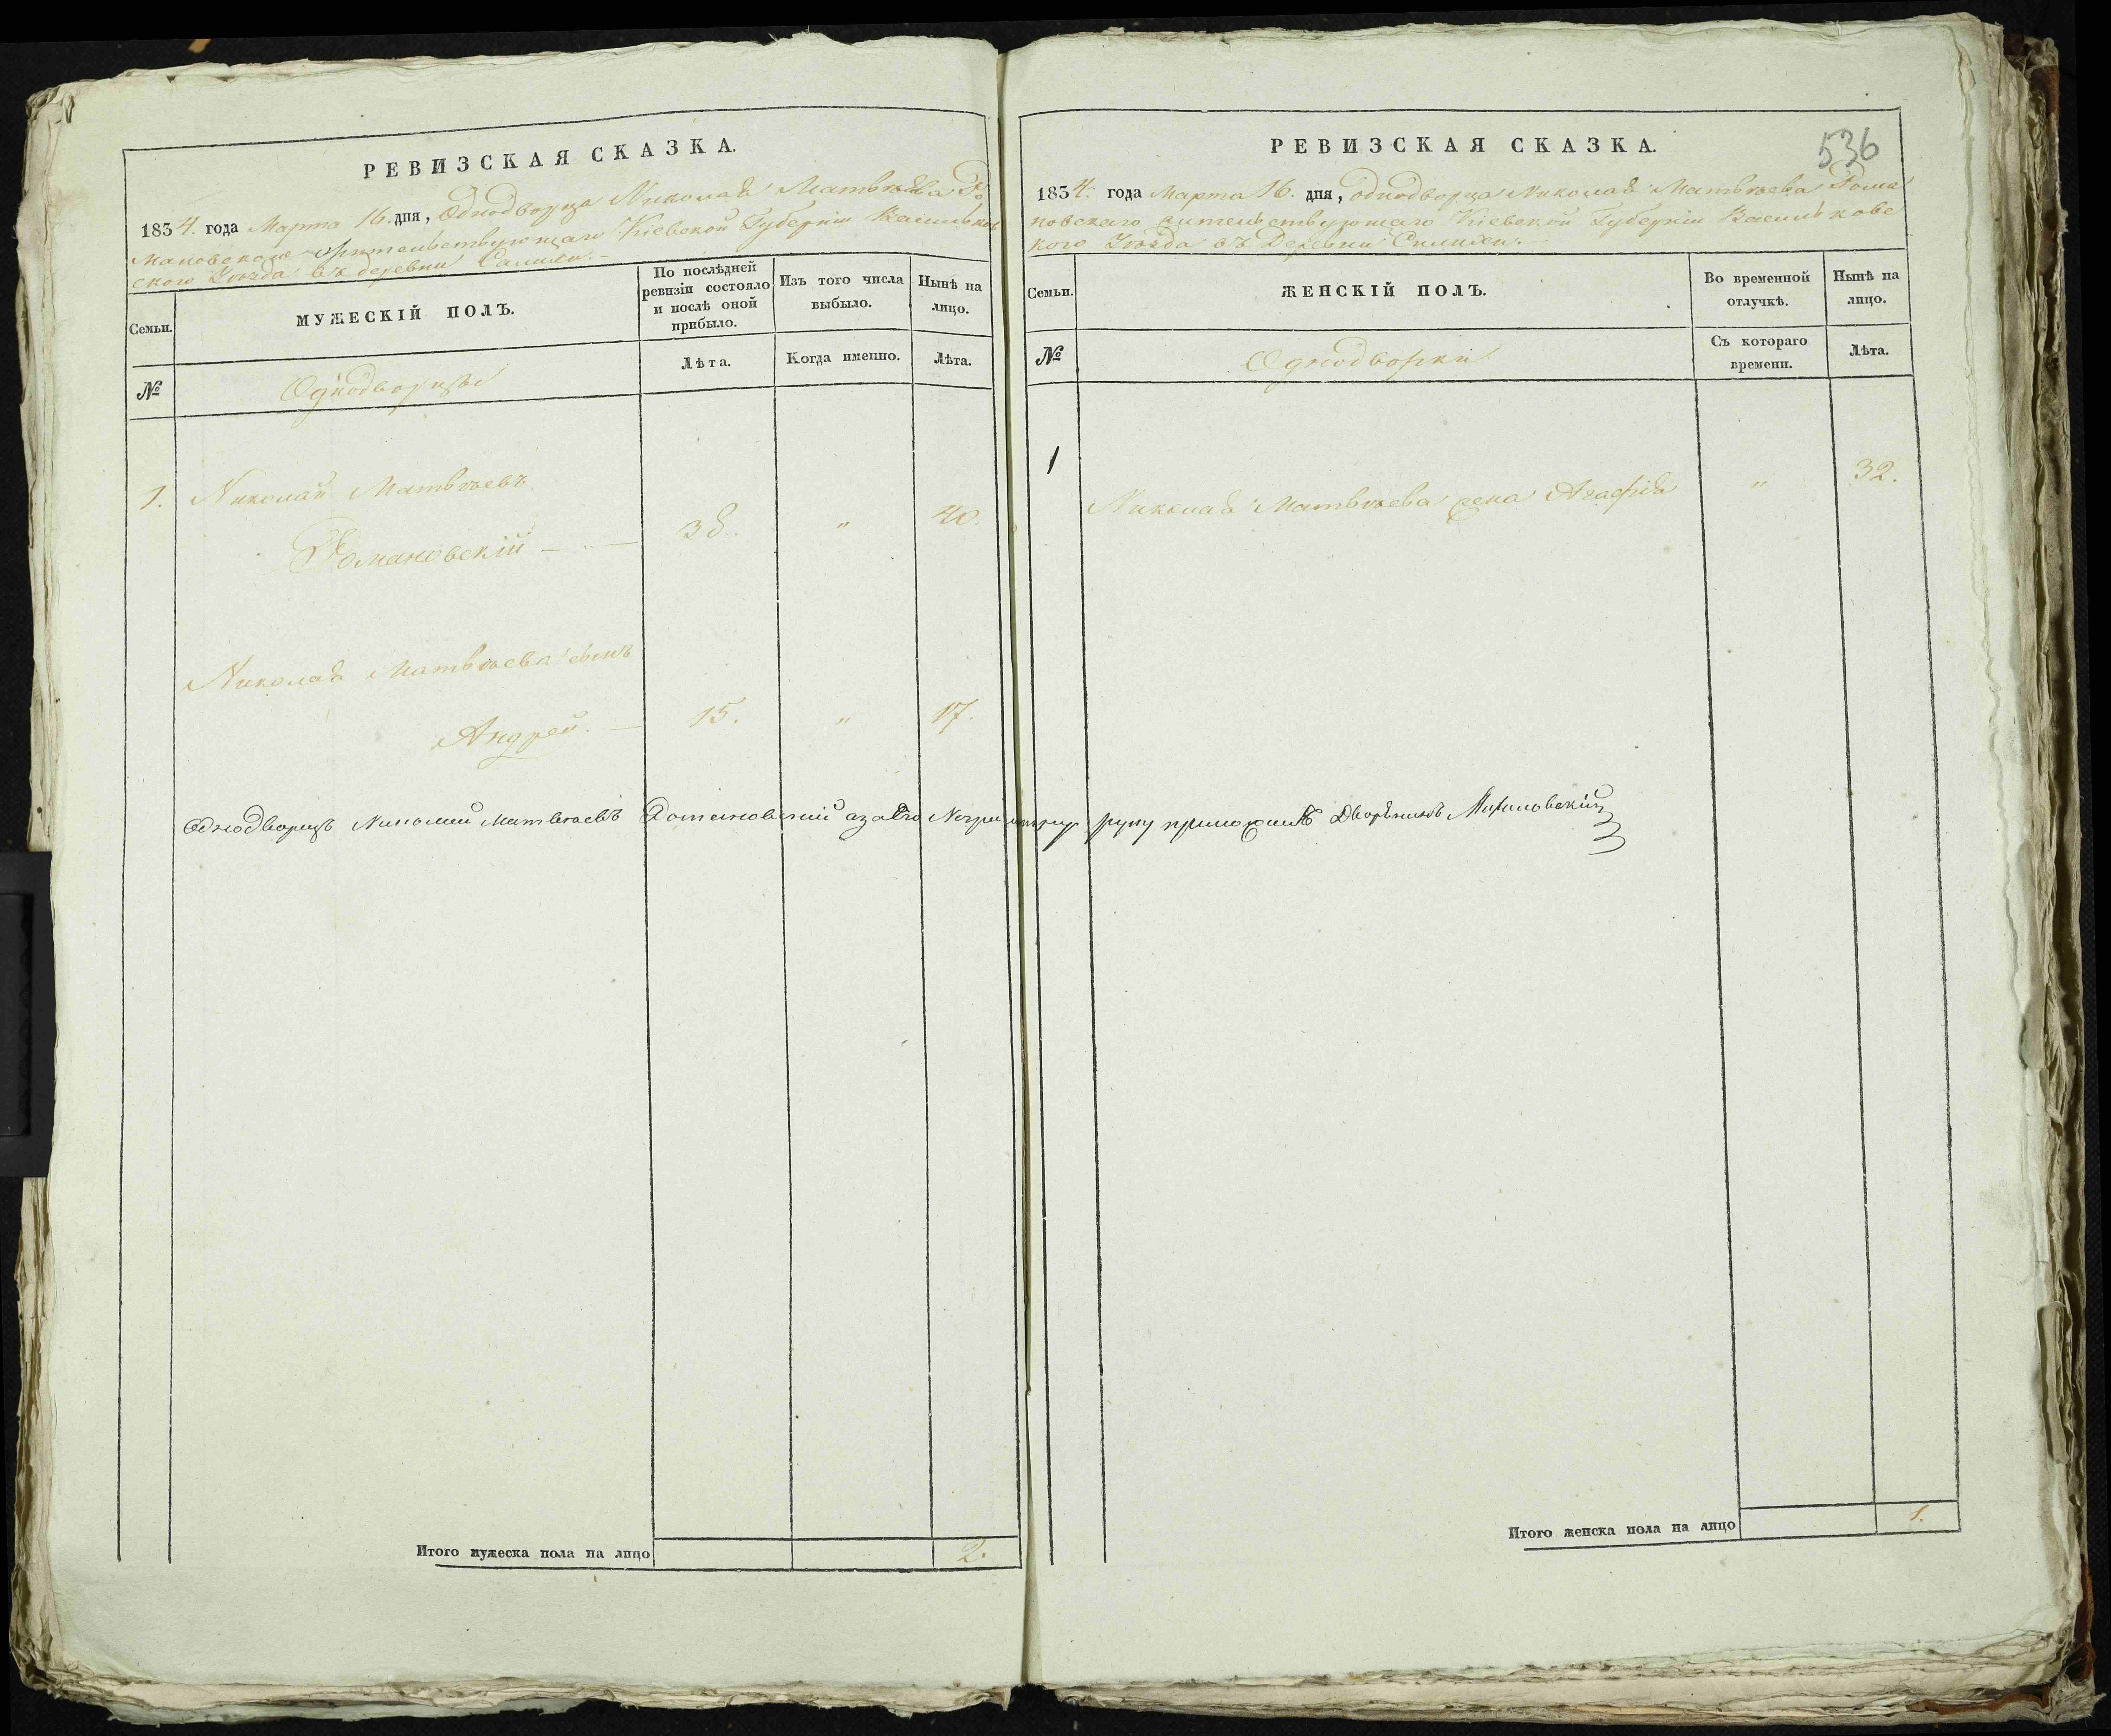 РЕВИЗСКАЯ СКАЗКА.
1834. года Марта 16. дня, Однодворца Николая Матвѣева Ро
мановского жительствующаго Кіевской Губерніи Васильков
ского Уѣзда въ деревни
Семьи.
МУЖЕСКІЙ ПОЛЪ.
По послѣдней
ревизіи состояло
и послѣ оной
прибыло.
Изъ того числа
выбыло.
Нынѣ на
лицо.
№
Однодворцы
Лѣта.
Когда именно.
Лѣта.
1. Николай Матвѣевъ
Романовскій — „ — 38. „ 40.
Николая Матвѣева сынъ
Андрей. — 15. „ 17.
Однодворецъ Николай Матвѣевъ Романовский а за его руку приложилъ Дворянинъ
Итого мужеска пола на лицо 2.
536
РЕВИЗСКАЯ СКАЗКА.
1834. года Марта 16. дня, однодворца Николая Матвѣева Рома
новского жительствующаго Кіевской Губерніи Васильковс
кого Уѣзда въ Деревни
Семьи.
ЖЕНСКІЙ ПОЛЪ.
Во временной
отлучкѣ.
Нынѣ на
лицо.
№
Однодворки
Съ котораго
времени.
Лѣта.
1
Николая Матвѣева жена Агафія „ 32.
Итого женска пола на лицо 1.